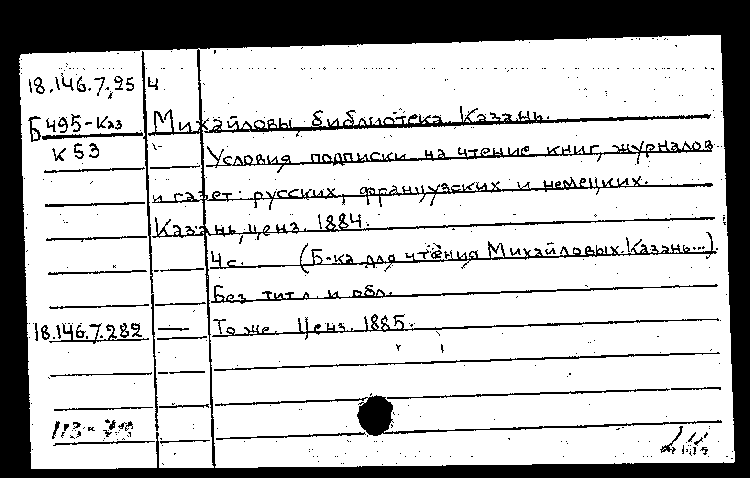 18.146.7.95 4
Б495-Каз Михайловы, библиотека. Казань.
К 53 Условия подписки на чтение книг, журналов
и газет: русских, французских и немецких.
Казань, ценз. 1884.
4 с. (Б-ка для чтения Михайловых. Казань...).
Без тит. л. и обл.
18.146.7.282 — То же. Ценз. 1885.
113-